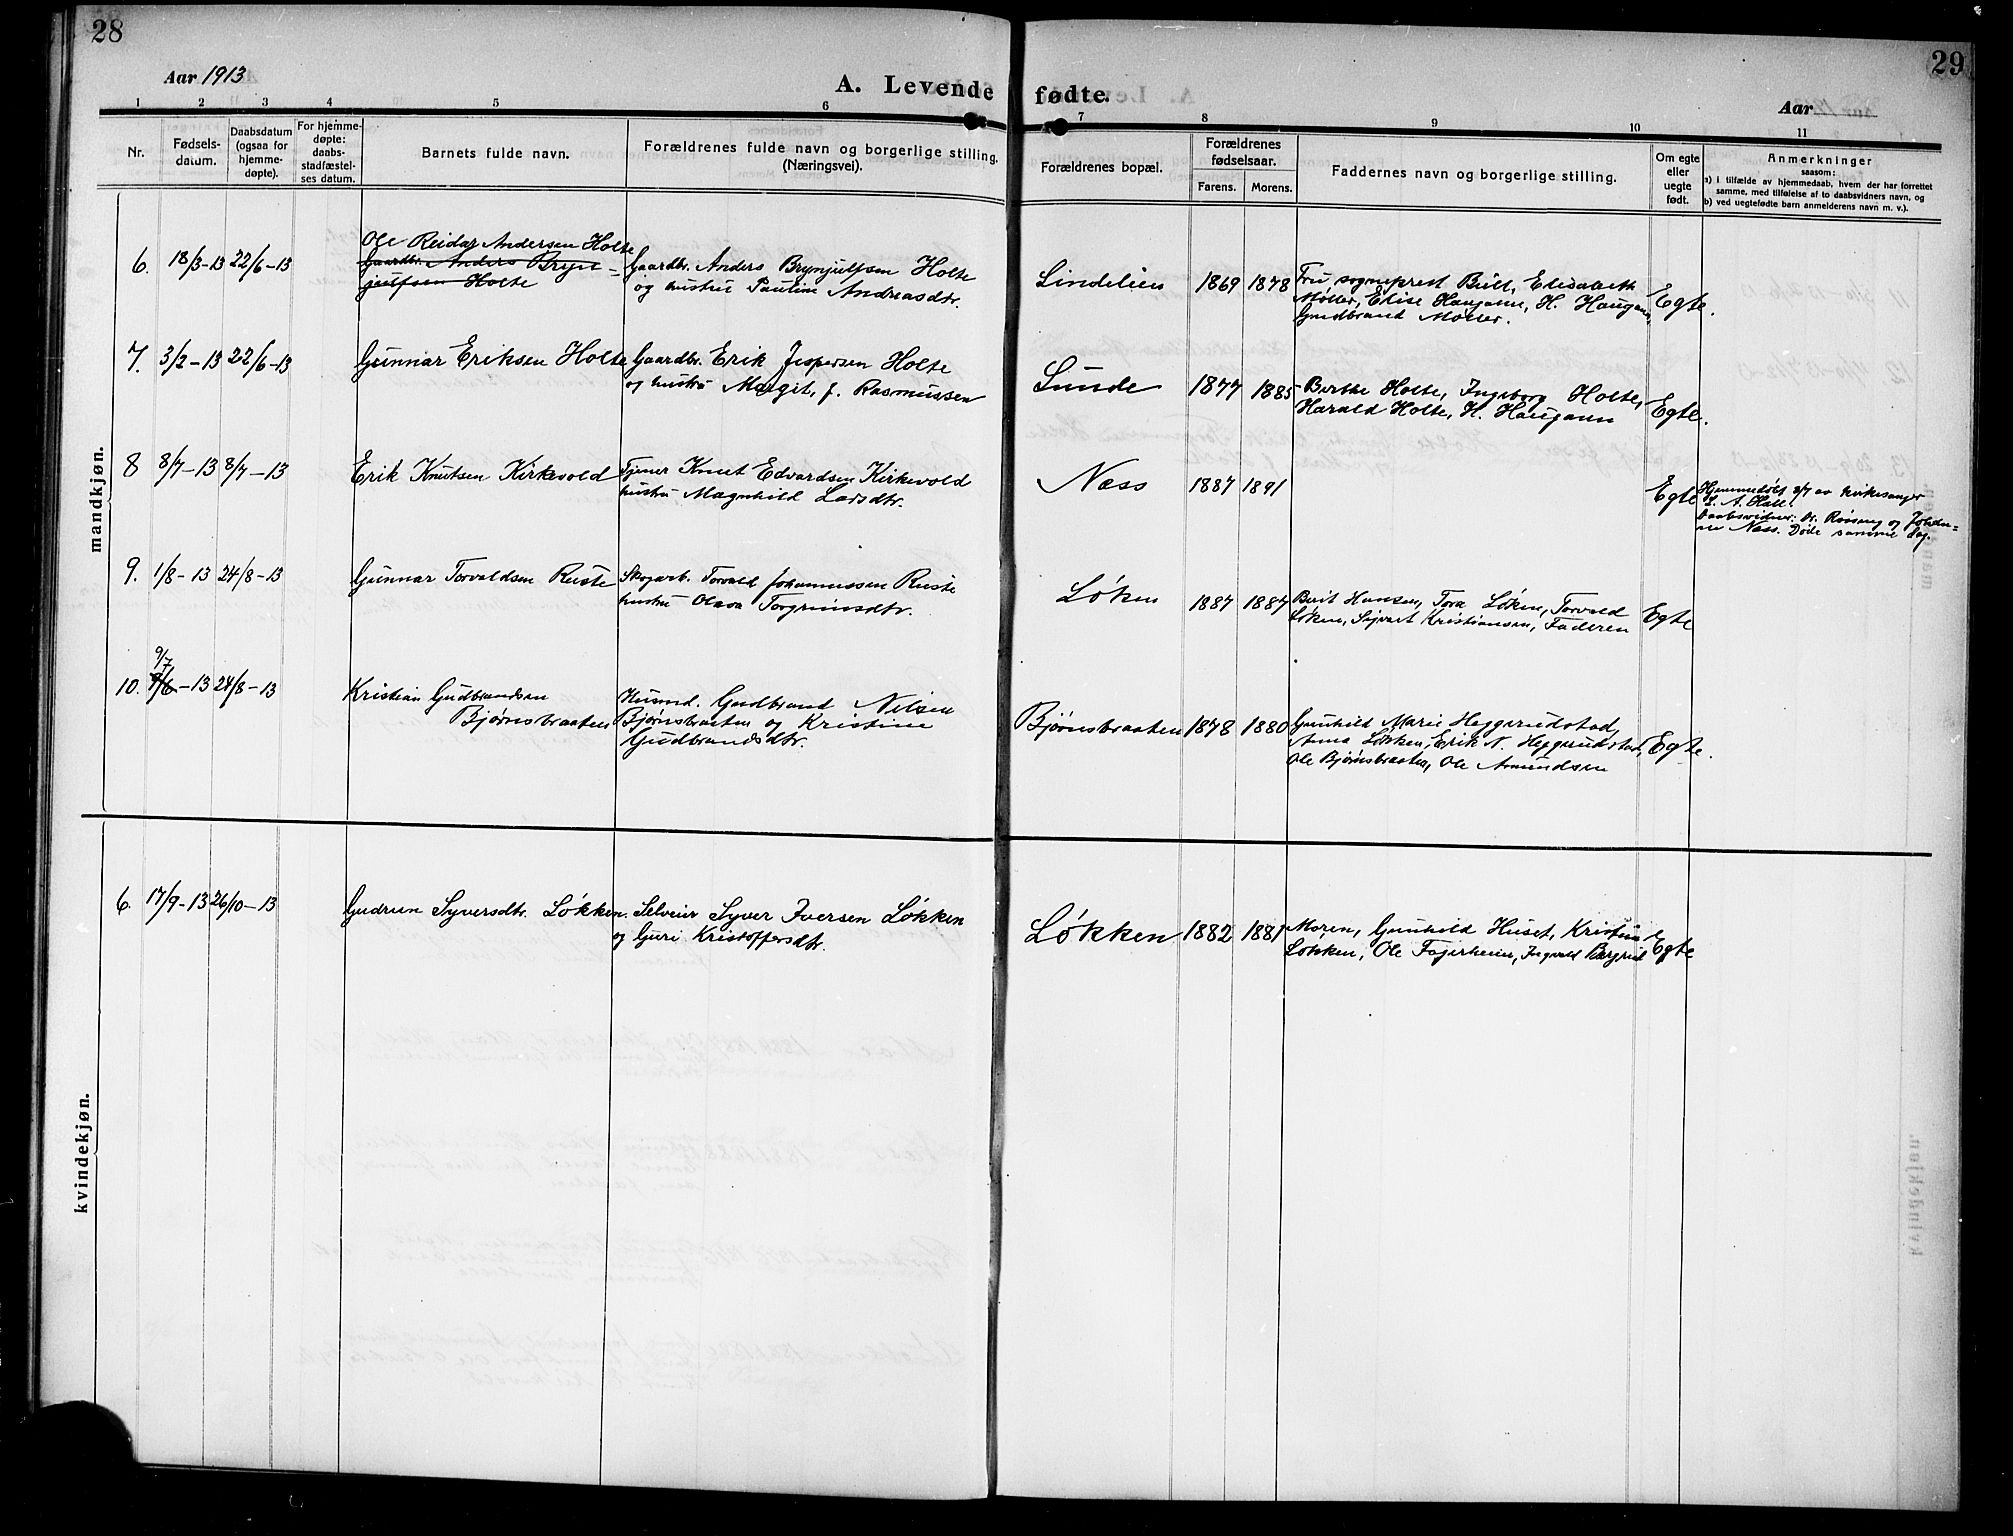 28
Aar 1913
A. Levende
1 2 3 4 5 6
Nr.
Fødsels-
datum.
Daabsdatum
(ogsaa for
hjemme-
døpte).
For hjemme-
døpte:
daabs-
stadfæstel-
ses datum.
Barnets fulde navn.
Forældrenes fulde navn og borgerlige stilling.
(Næringsvei).
mandkjøn.
6. 18/3-13 22/6-13
Ole Reidar Andersen Holte
Gaardbr. Anders Bryn-
julfsen Holte
Gaardbr. Anders Brynjulfsen Holte
og hustru Pauline Andreasdtr.
7. 3/2-13 22/6-13
Gunnar Eriksen Holte
Gaardbr. Erik Jespersen Holte
og hustru Margit, f. Rasmussen
8 8/7-13 8/7-13
Erik Knutsen Kirkevold
Tjener Knut Edvardsen Kirkevold
hustru Magnhild Larsdtr.
9. 1/8-13 24/8-13
Gunnar Torvaldsen Ruste
Skogarb. Torvald Johannessen Ruste
hustru Olava Torgrimsdtr.
9/7
10. 9/6-13 24/8-13
Kristian Gudbrandsen
Bjørnsbraaten
Husmd. Gudbrand Nilsen
Bjørnsbraaten og Kristine
Gudbrandsdtr.
kvindekjøn.
6. 17/9-13 26/10-13
Gudrun Syversdtr. Løkken.
Selveier Syver Iversen Løkken
og Guri Kristoffersdtr.
29
fødte.
Aar
7 8 9 10 11
Forældrenes bopæl.
Forældrenes
fødselsaar.
Farens. Morens.
Faddernes navn og borgerlige stilling.
Om egte
eller
uegte
født.
Anmerkninger
saasom:
a) i tilfælde av hjemmedaab, hvem der har forrettet
samme, med tilføielse af to daabsvidners navn, og
b) ved uegtefødte barn anmelderens navn m. v.).
Lindelien 1869 1878
Fru sogneprest Bull, Elisabeth
Møller, Elise Haugann, H. Haugann,
Gudbrand Møller.
Egte.
Lunde 1877 1885
Berthe Holte, Ingeborg Holte,
Harald Holte, H. Haugann
Egte.
Næss 1887 1891
Egte
Hjemmedøbt 8/7 av kirkesanger
L. A. Hall.
Daabsvidner: Dr. Røssung og Johan-
ne Næss. Døde samme dag.
Løken 1887 1887
Berit Hansen, Tora Løken, Torvald
Løken, Sigvart Kristiansen, Faderen
Egte
Bjørnsbraaten 1878 1880
Gunhild Marie Heggerudstad,
Anna Løkken, Erik N. Heggerudstad,
Ole Bjørnsbraaten, Ole Amundsen
Egte.
Løkken 1882 1881
Moren, Gunhild Huset, Kristine
Løkken, Ole Fagerheim, Ingvald Bergrud
Egte